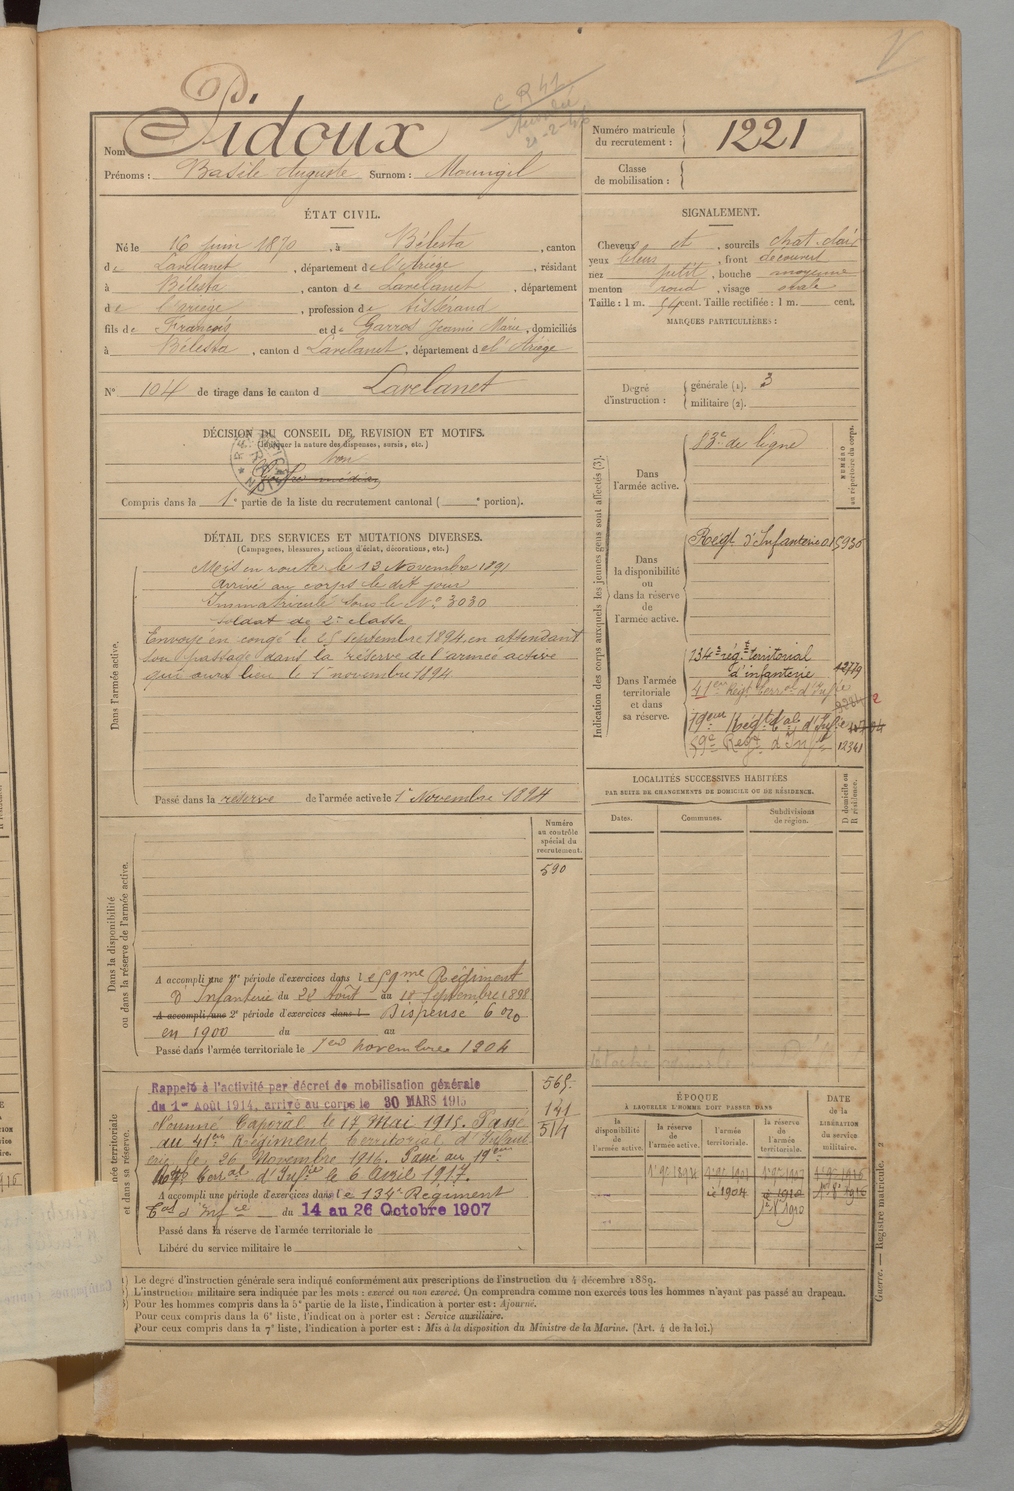 C R 41
V
Nom : Pidoux
Prénoms : Basile Auguste Surnom : Mounigil
Numéro matricule du recrutement : 1221
Classe de mobilisation :
ÉTAT CIVIL.
Né le 16 juin 1870, à Bélesta, canton
de Lavelanet, département de l'Ariège, résidant
à Bélesta, canton de Lavelanet, département
de l'Ariège, profession de tisserand
fils de François et de Garros Jeanne Marie, domiciliés
à Bélesta, canton d Lavelanet, département de l'Ariège
N° 104 de tirage dans le canton d Lavelanet
SIGNALEMENT.
Cheveux et, sourcils chat. clair
yeux bleus, front découvert
nez petit, bouche moyenne
menton rond, visage ovale
Taille : 1 m. 54 cent. Taille rectifiée : 1 m. cent.
MARQUES PARTICULIÈRES :
Degré d'instruction : générale (1). 3
militaire (2).
DÉCISION DU CONSEIL DE REVISION ET MOTIFS.
(Indiquer la nature des dispenses, sursis, etc.)
bon
Compris dans la 1e partie de la liste du recrutement cantonal ( e portion).
DÉTAIL DES SERVICES ET MUTATIONS DIVERSES.
(Campagnes, blessures, actions d'éclat, décorations, etc.)
Dans l'armée active.
Mis en route le 12 Novembre 1891
Arrivé au corps le dit jour
Immatriculé sous le N° 3030
soldat de 2e classe
Envoyé en congé le 25 septembre 1894, en attendant
son passage dans la réserve de l'armée active
qui aura lieu le 1 novembre 1894
Passé dans la réserve de l'armée active le 1er Novembre 1894
Indication des corps auxquels les jeunes gens sont affectés (3).
NUMÉRO au répertoire du corps.
Dans l'armée active.
83e de ligne
Dans la disponibilité ou dans la réserve de l'armée active.
Régt d'Infanterie 5936
Dans l'armée territoriale et dans sa réserve.
134e rég. territorial
d'infanterie 12779
41em Régt terral d'Infie
19em Régt tal d'Infie
59e Régt d'Infie 12341
LOCALITÉS SUCCESSIVES HABITÉES
PAR SUITE DE CHANGEMENTS DE DOMICILE OU DE RÉSIDENCE.
Dates. Communes. Subdivisions de région. D domicile ou R résidence.
Dans la disponibilité ou dans la réserve de l'armée active.
Numéro au contrôle spécial du recrutement.
590
A accompli une 1re période d'exercices dans le 59me Régiment
d'Infanterie du 22 Août au 18 Septembre 1898
A accompli une 2e période d'exercices dans l Dispense 6 0/0
en 1900 du au
Passé dans l'armée territoriale le 1er novembre 1904
Rappelé à l'activité par décret de mobilisation générale
du 1er Août 1914, arrivé au corps le 30 MARS 1915
Nommé Caporal le 17 Mai 1915. Passé
au 41em Régiment territorial d'Infant
erie le 26 Novembre 1916. Passé au 19em
Régt Terral d'Infie le 6 Avril 1917.
A accompli une période d'exercices dans le 134e Régiment
Tal d'Infie du 14 au 26 Octobre 1907
Passé dans la réserve de l'armée territoriale le
Libéré du service militaire le
565
141
514
ÉPOQUE
À LAQUELLE L'HOMME DOIT PASSER DANS
la disponibilité de l'armée active. la réserve de l'armée active. l'armée territoriale. la réserve de l'armée territoriale.
DATE de la LIBÉRATION du service militaire.
Guerre. — Registre matricule. 2
(1) Le degré d'instruction générale sera indiqué conformément aux prescriptions de l'instruction du 4 décembre 1889.
(2) L'instruction militaire sera indiquée par les mots : exercé ou non exercé. On comprendra comme non exercés tous les hommes n'ayant pas passé au drapeau.
(3) Pour les hommes compris dans la 5e partie de la liste, l'indication à porter est : Ajourné.
Pour ceux compris dans la 6e liste, l'indication à porter est : Service auxiliaire.
Pour ceux compris dans la 7e liste, l'indication à porter est : Mis à la disposition du Ministre de la Marine. (Art. 4 de la loi.)